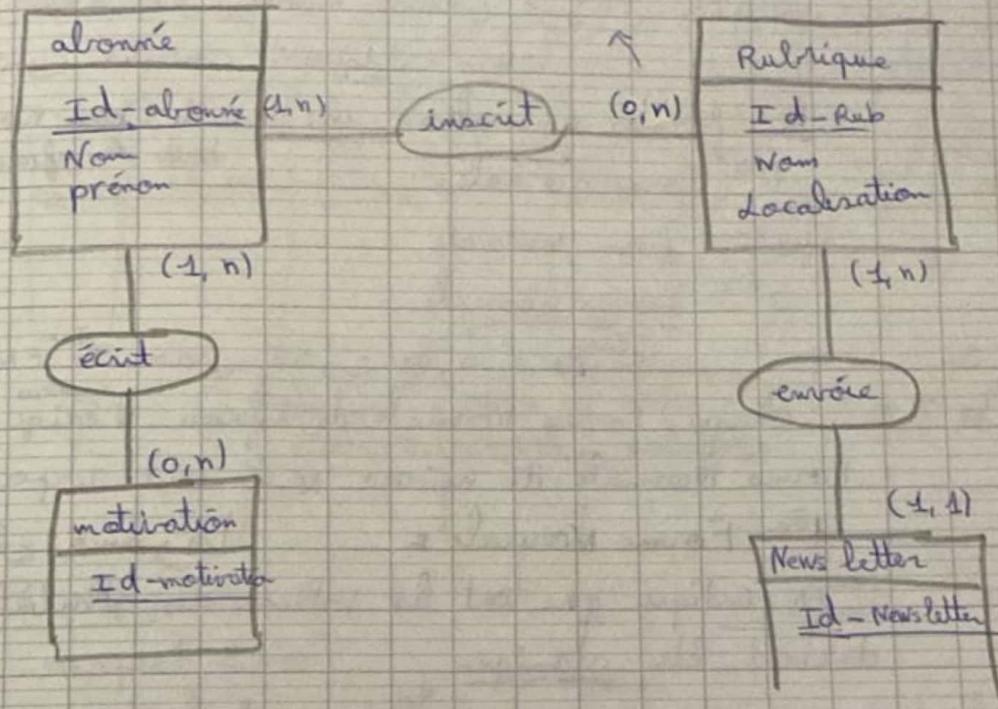 abonné
Id-abonné (1,n)
Nom
prénom
inscrit
(0,n)
Rubrique
Id-Rub
Nom
Localisation
(1,n)
écrit
(0,n)
motivation
Id-motivatio
(1,n)
envoie
(1,1)
News letter
Id-Newsletter